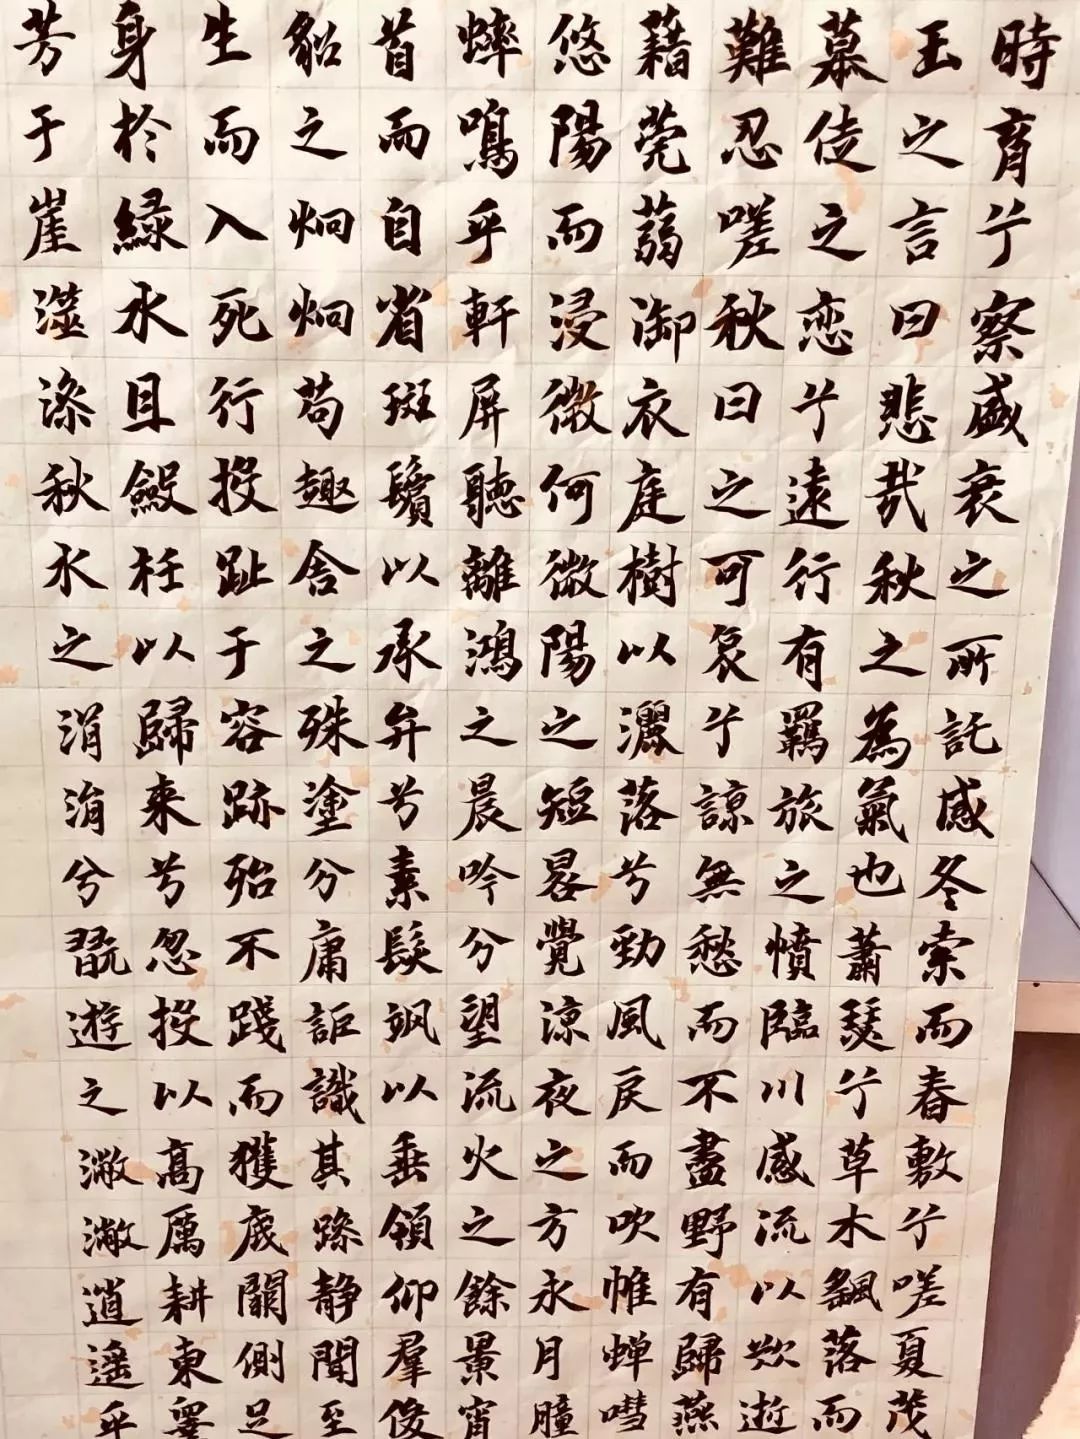 時育兮察盛衰之所託感冬索而春敷兮嗟夏茂
王之言曰悲哉秋之為氣也蕭瑟兮草木飄落而
慕徒之恋兮遠行有羈旅之憤臨川感流以歎逝
難忍嗟秋日之可哀兮諒無愁而不盡野有歸燕
藉莞蒻御衣庭樹以灑落兮勁風戾而吹帷蝉嘒
悠陽而浸微何微陽之短晷覺涼夜之方永月朣
蟀鳴乎軒屏聽離鴻之晨吟兮望流火之餘景宵
首而自省斑鬢以承弁兮素髮颯以垂領仰羣俊
貂之炯炯苟趣舍之殊塗兮庸詎識其躁静聞至
生而入死行投趾于容跡殆不踐而獲底闕側足
身於綠水且斂衽以歸来兮忽投以高厲耕東睪
芳于崖澨澡秋水之涓涓兮翫遊之潎潎逍遥乎